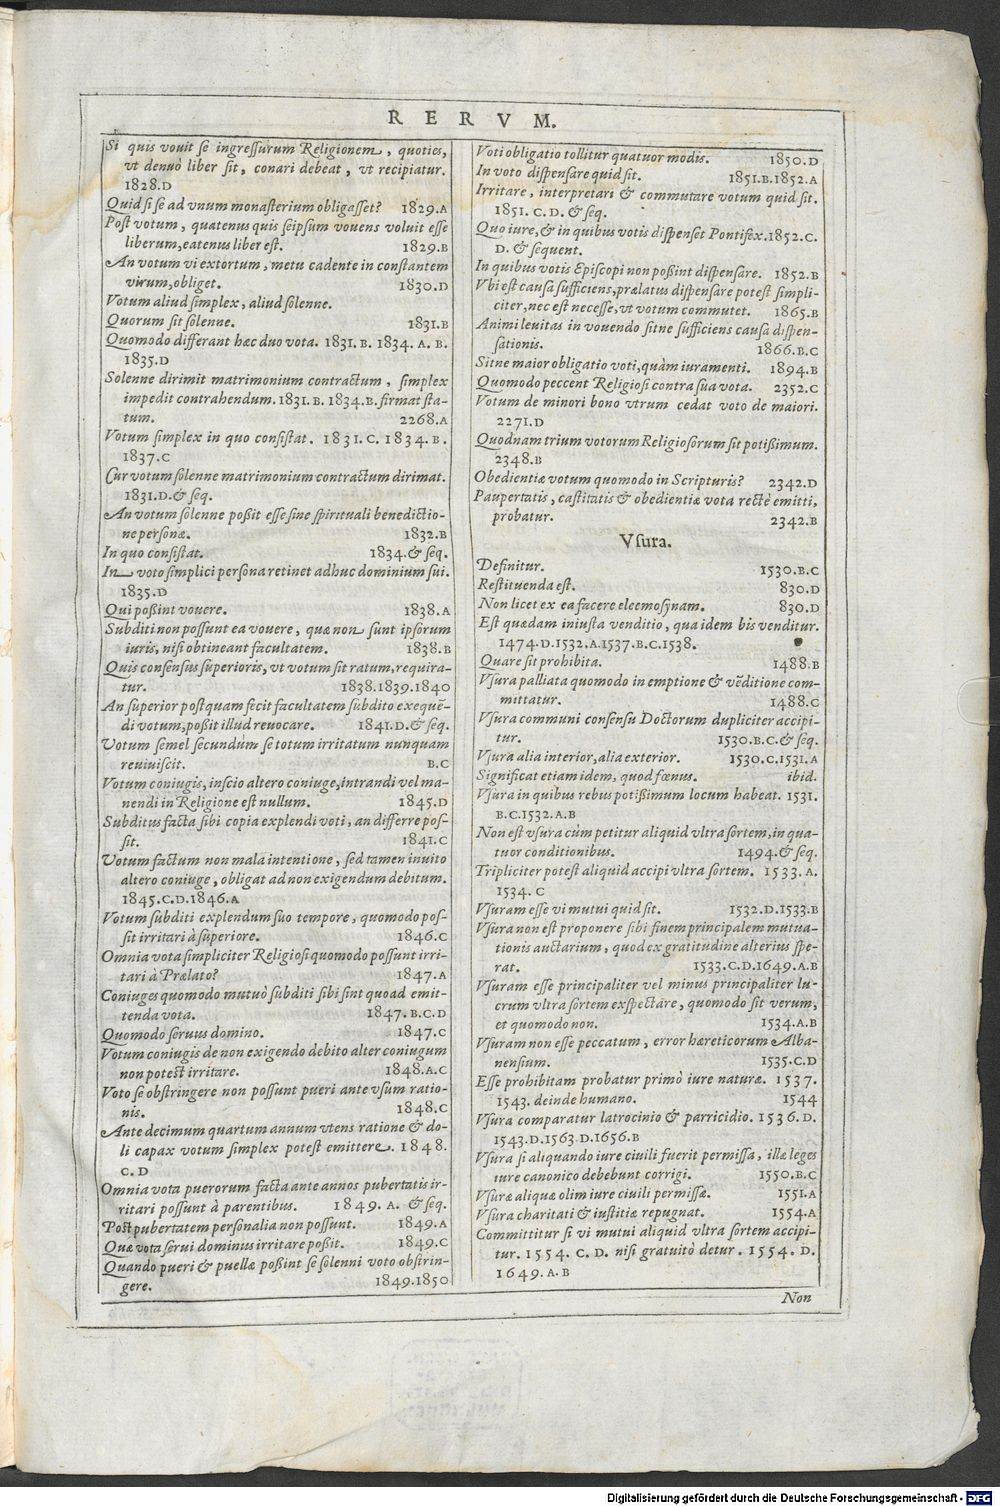 RERVM.
Si quis vouit se ingressurum Religionem, quoties,
vt denuò liber sit, conari debeat, vt recipiatur.
1828.D
Quid si se ad vnum monasterium obligasset? 1829.A
Post votum, quatenus quis seipsum vouens voluit esse
liberum, eatenus liber est. 1829.B
An votum vi extortum, metu cadente in constantem
virum, obliget. 1830.D
Votum aliud simplex, aliud solenne.
Quorum sit solenne. 1831.B
Quomodo differant hæc duo vota. 1831. B. 1834. A. B.
1835.D
Solenne dirimit matrimonium contractum, simplex
impedit contrahendum. 1831. B. 1834. B. firmat sta-
tum. 2268.A
Votum simplex in quo consistat. 1831. C. 1834. B.
1837.C
Cur votum solenne matrimonium contractum dirimat.
1831.D. & seq.
An votum solenne poßit esse sine spirituali benedictio-
ne personæ. 1832.B
In quo consistat. 1834. & seq.
In voto simplici persona retinet adhuc dominium sui.
1835.D
Qui poßint vouere. 1838.A
Subditi non possunt ea vouere, quæ non sunt ipsorum
iuris, nisi obtineant facultatem. 1838.B
Quis consensus superioris, vt votum sit ratum, requira-
tur. 1838.1839.1840
An superior postquam fecit facultatem subdito exequē-
di votum, poßit illud reuocare. 1841.D. & seq.
Votum semel secundum se totum irritatum nunquam
reuiuiscit. B.C
Votum coniugis, inscio altero coniuge, intrandi vel ma-
nendi in Religione est nullum. 1845.D
Subditus facta sibi copia explendi voti, an differre pos-
sit. 1841.C
Votum factum non mala intentione, sed tamen inuito
altero coniuge, obligat ad non exigendum debitum.
1845.C.D.1846.A
Votum subditi explendum suo tempore, quomodo pos-
sit irritari à superiore. 1846.C
Omnia vota simpliciter Religiosi quomodo possunt irri-
tari à Prælato? 1847.A
Coniuges quomodo mutuò subditi sibi sint quoad emit-
tenda vota. 1847. B.C.D
Quomodo seruus domino. 1847.C
Votum coniugis de non exigendo debito alter coniugum
non potest irritare. 1848.A.C
Voto se obstringere non possunt pueri ante vsum ratio-
nis. 1848.C
Ante decimum quartum annum vtens ratione & do-
li capax votum simplex potest emittere. 1848.
C. D
Omnia vota puerorum facta ante annos pubertatis ir-
ritari possunt à parentibus. 1849. A. & seq.
Post pubertatem personalia non possunt. 1849.A
Quæ vota serui dominus irritare poßit. 1849.C
Quando pueri & puellæ poßint se solenni voto obstrin-
gere. 1849.1850
Voti obligatio tollitur quatuor modis. 1850.D
In voto dispensare quid sit. 1851.B.1852.A
Irritare, interpretari & commutare votum quid sit.
1851. C. D. & seq.
Quo iure, & in quibus votis dispenset Pontifex. 1852.C.
D. & sequent.
In quibus votis Episcopi non poßint dispensare. 1852.B
Vbi est causa sufficiens, prælatus dispensare potest simpli-
citer, nec est necesse, vt votum commutet. 1865.B
Animi leuitas in vouendo sitne sufficiens causa dispen-
sationis. 1866.B.C
Sitne maior obligatio voti, quàm iuramenti. 1894.B
Quomodo peccent Religiosi contra sua vota. 2352.C
Votum de minori bono vtrum cedat voto de maiori.
2271.D
Quodnam trium votorum Religiosorum sit potißimum.
2348.B
Obedientiæ votum quomodo in Scripturis? 2342.D
Paupertatis, castitatis & obedientiæ vota rectè emitti,
probatur. 2342.B
Vsura.
Definitur. 1530.B.C
Restituenda est. 830.D
Non licet ex ea facere eleemosynam. 830.D
Est quædam iniusta venditio, qua idem bis venditur.
1474.D.1532.A.1537.B.C.1538.
Quare sit prohibita. 1488.B
Vsura palliata quomodo in emptione & vēditione com-
mittatur. 1488.C
Vsura communi consensu Doctorum dupliciter accipi-
tur. 1530.B.C. & seq.
Vsura alia interior, alia exterior. 1530.C.1531.A
Significat etiam idem, quod fœnus. ibid.
Vsura in quibus rebus potißimum locum habeat. 1531.
B.C.1532.A.B
Non est vsura cùm petitur aliquid vltra sortem, in qua-
tuor conditionibus. 1494. & seq.
Tripliciter potest aliquid accipi vltra sortem. 1533. A.
1534. C
Vsuram esse vi mutui quid sit. 1532.D.1533.B
Vsura non est proponere sibi finem principalem mutua-
tionis auctarium, quod ex gratitudine alterius spe-
rat. 1533.C.D.1649.A.B
Vsuram esse principaliter vel minus principaliter lu-
crum vltra sortem exspectare, quomodo sit verum,
et quomodo non. 1534.A.B
Vsuram non esse peccatum, error hæreticorum Alba-
nensium. 1535.C.D
Esse prohibitam probatur primò iure naturæ. 1537.
1543. deinde humano. 1544
Vsura comparatur latrocinio & parricidio. 1536. D.
1543.D.1563.D.1656.B
Vsura si aliquando iure ciuili fuerit permissa, illæ leges
iure canonico debebunt corrigi. 1550.B.C
Vsuræ aliquæ olim iure ciuili permissæ. 1551.A
Vsura charitati & iustitiæ repugnat. 1554.A
Committitur si vi mutui aliquid vltra sortem accipi-
tur. 1554. C. D. nisi gratuitò detur. 1554. D.
1649.A.B
Non
Digitalisierung gefördert durch die Deutsche Forschungsgemeinschaft - DFG